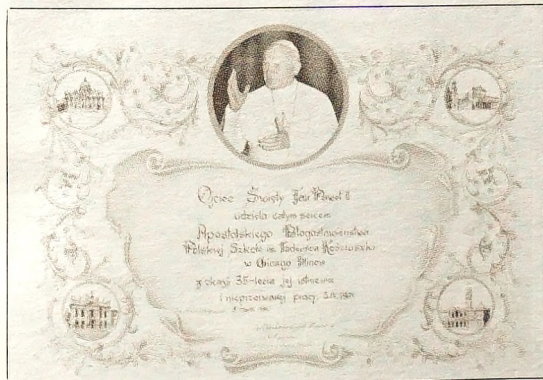 Ojciec Święty Jan Paweł II
udziela całym sercem
Apostolskiego Błogosławieństwa
Polskiej Szkole im. Tadeusza Kościuszki
w Chicago Illinois
z okazji 35-lecia jej istnienia
i nieprzerwanej pracy.